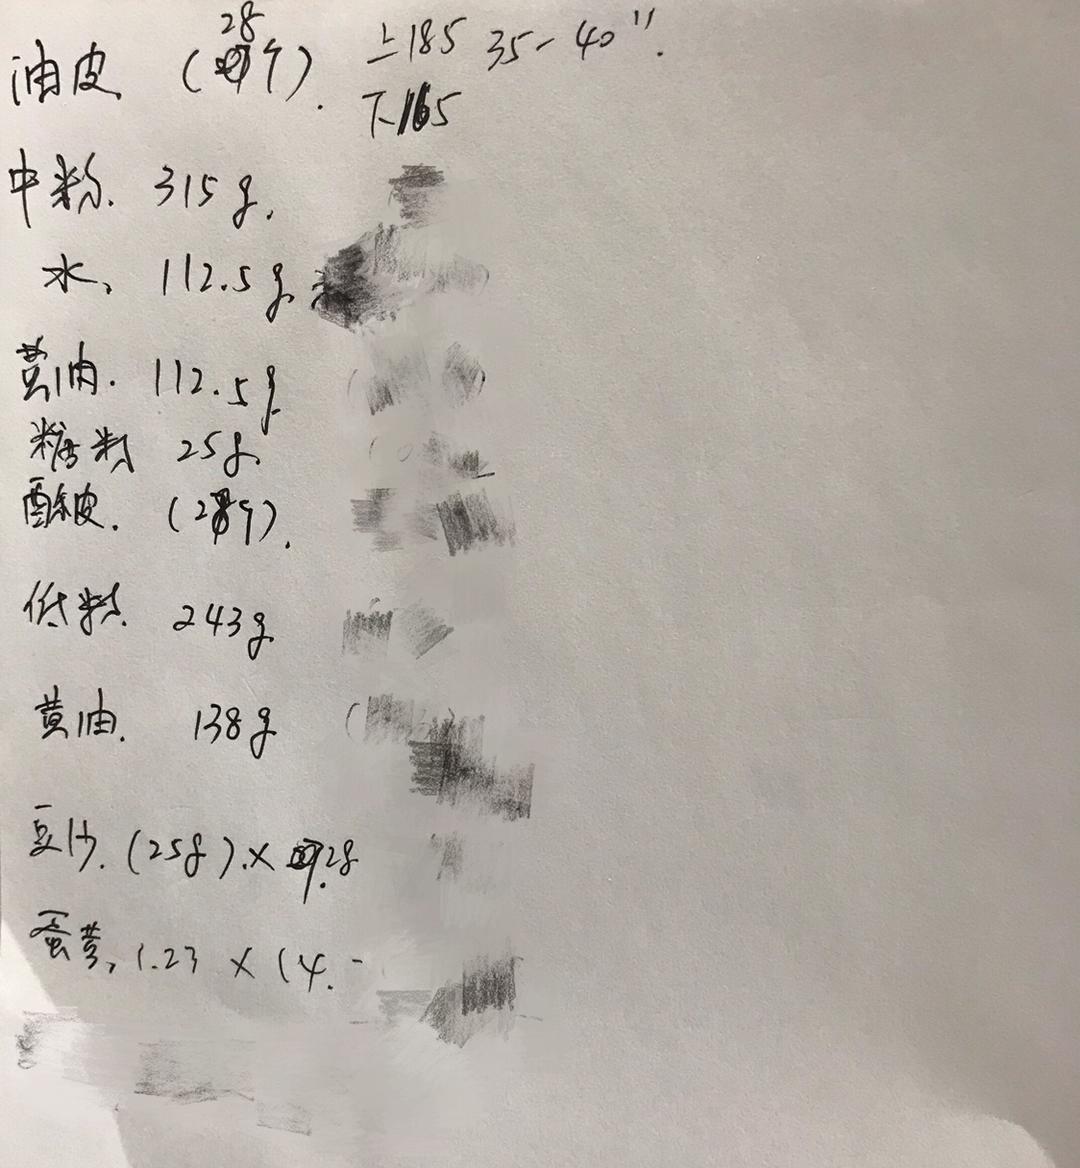 油皮 (28个). 上185 35-40".
下165
中粉. 315g.
水. 112.5g.
黄油. 112.5g
糖粉 25g.
酥皮. (28个).
低粉. 243g
黄油. 138g
豆沙. (25g).× 28
蛋黄, 1.23 × 14.-